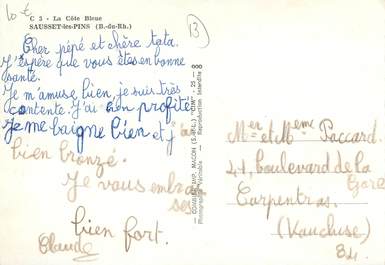 10 €
C 3 - La Côte Bleue
SAUSSET-les-PINS (B.-du-Rh.)
13
Cher pépé et chère tata.
J'espère que vous êtes en bonne
santé.
Je m'amuse bien, je suis très
contente. J'ai bien profité
Je me baigne bien et j'ai
bien bronzé.
Je vous embras
se
bien fort.
Claude
COMBIER IMP. MACON (S.-&-L.) "CIM"
Reproduction interdite
Mer et Meme Paccard
41, boulevard de la
Gare
Carpentras.
(Vaucluse)
84.